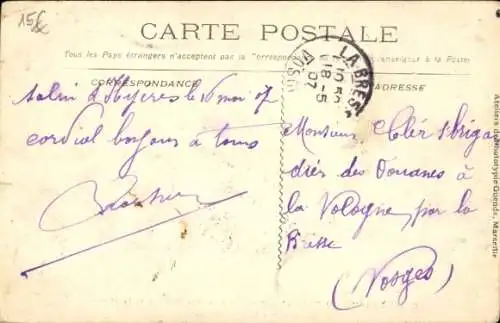 15€
CARTE POSTALE
Tous les Pays étrangers n'acceptent pas la Correspondance
renseigner à la Poste
CORRESPONDANCE
ADRESSE
LA BRESSE
18-5
07
VOSGES
Salins d'Hyères le 16 mai 07
cordial bonjour à tous
Monsieur Clér brigadier
des Douanes à
la Vologne par la
Bresse
(Vosges)
Ateliers de Phototypie Guende, Marseille